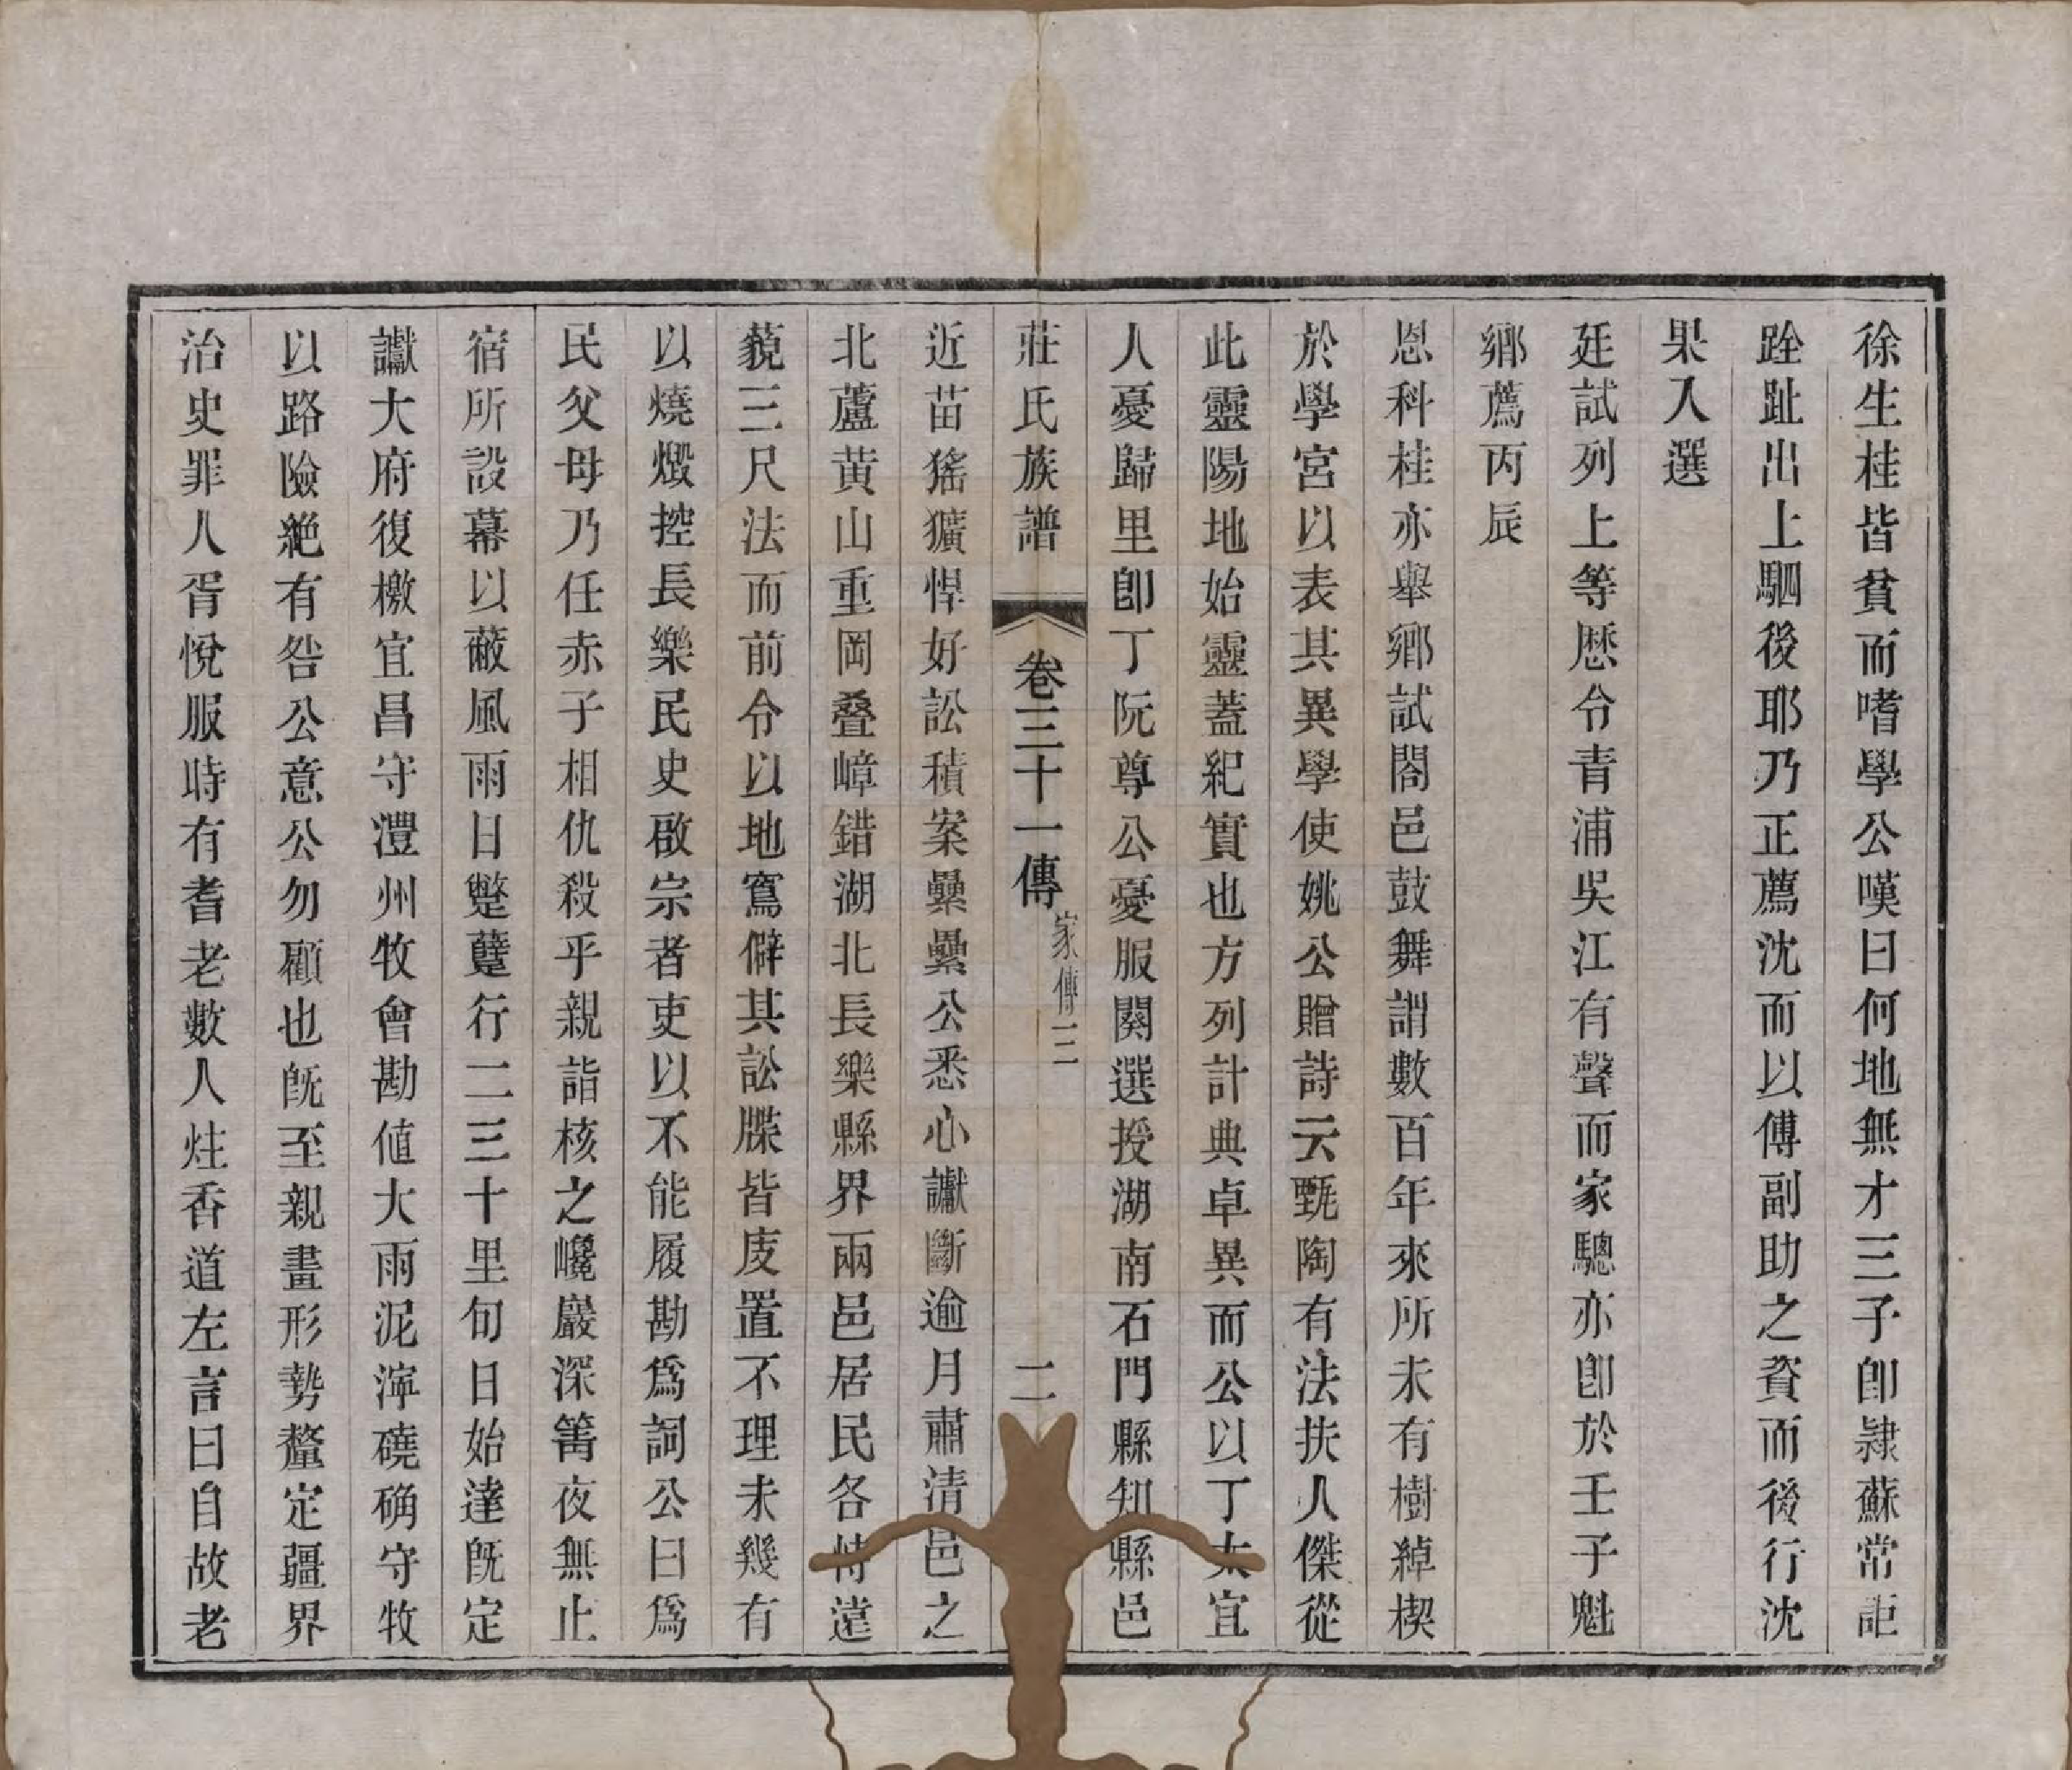 徐生桂皆貧而嗜學公嘆曰何地無才三子卽隷蘇常詎
跧趾出上駟後耶乃正薦沈而以傅副助之資而後行沈
果入選
廷試列上等厯令青浦吳江有聲而家驄亦卽於壬子魁
鄉薦丙辰
恩科桂亦舉鄉試閤邑鼓舞謂數百年來所未有樹綽楔
於學宮以表其異學使姚公贈詩云甄陶有法扶人傑從
此靈陽地始靈蓋紀實也方列計典卓異而公以丁太宜
人憂歸里卽丁阮尊公憂服闋選授湖南石門縣知縣邑
莊氏族譜 卷三十一傳 家傳三 二
近苗猺獷悍好訟積案纍纍公悉心讞斷逾月肅清邑之
北蘆黃山重岡叠嶂錯湖北長樂縣界兩邑居民各恃遠
藐三尺法而前令以地窵僻其訟牒皆庋置不理未幾有
以燒燬控長樂民史啟宗者吏以不能履勘爲詞公曰爲
民父母乃任赤子相仇殺乎親詣核之巉巖深箐夜無止
宿所設幕以蔽風雨日蹩躠行二三十里旬日始達旣定
讞大府復檄宜昌守澧州牧會勘値大雨泥濘磽确守牧
以路險絶有咎公意公勿顧也旣至親畫形勢釐定疆界
治史罪人胥悅服時有耆老數人炷香道左言曰自故老